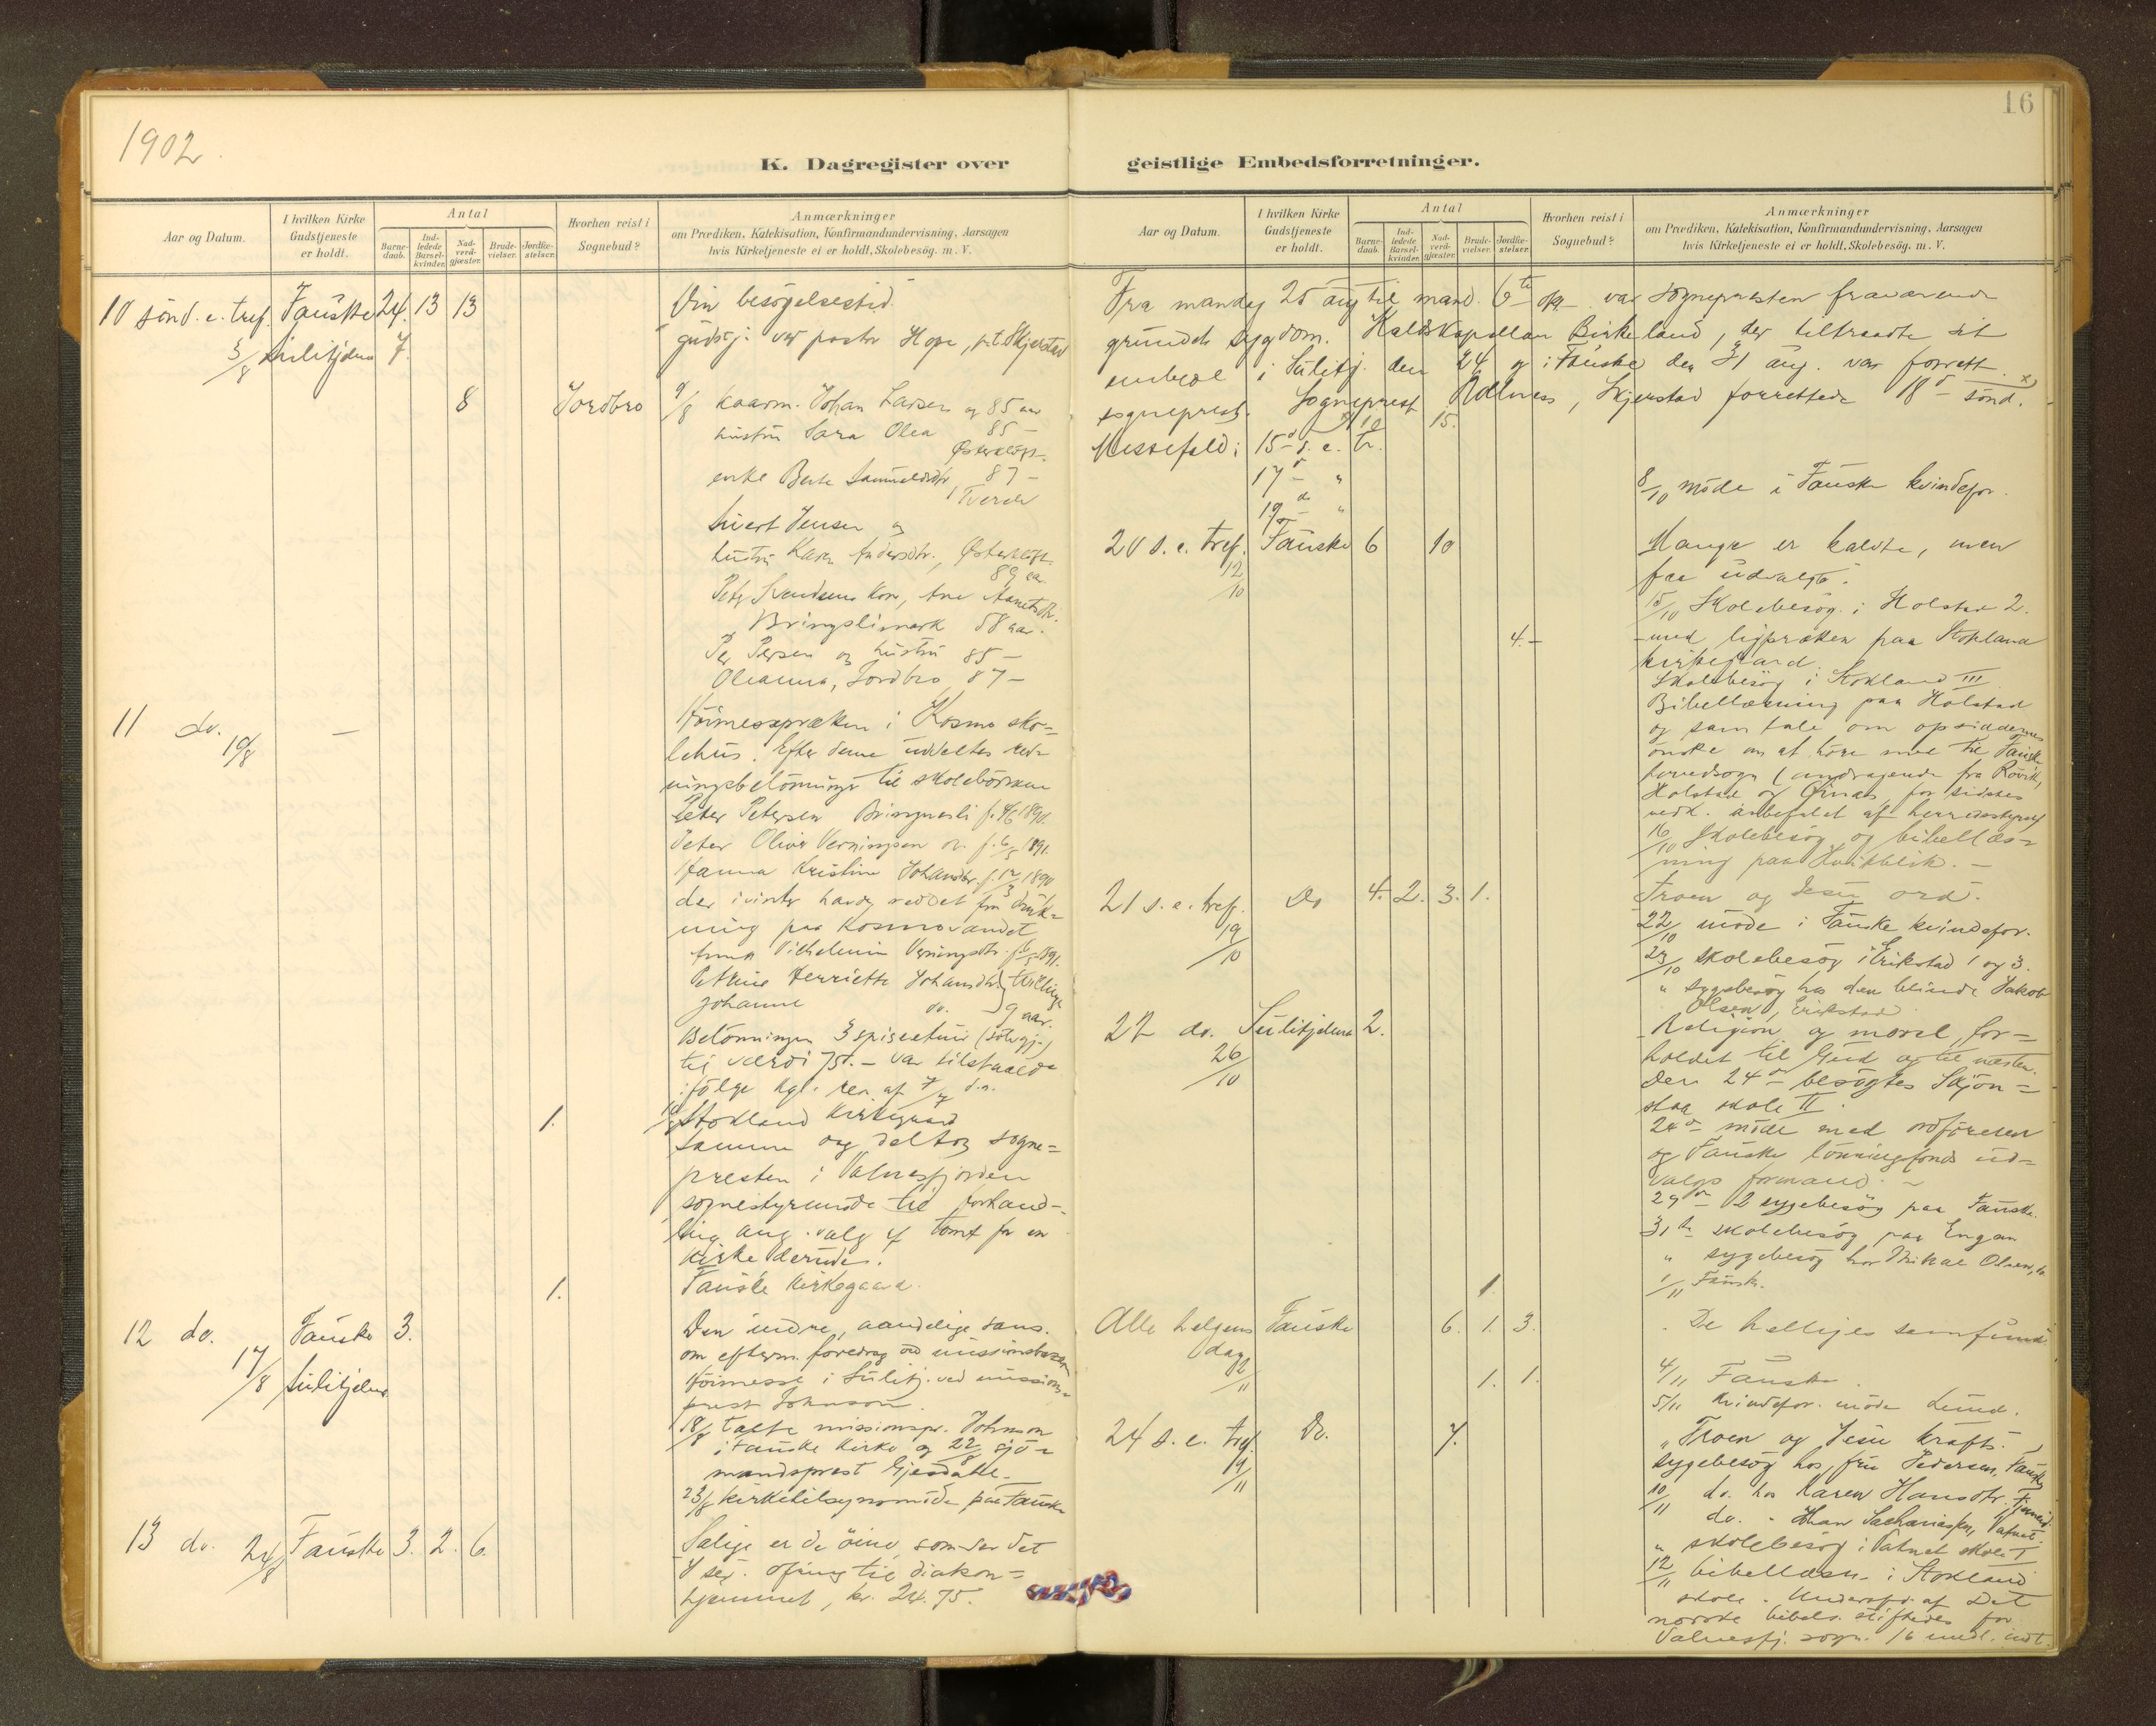 1902.
16
K. Dagregister over geistlige Embedsforretninger.
Aar og Datum.
I hvilken Kirke Gudstjeneste er holdt.
Antal
Barne-daab.
Ind-ledede Barsel-kvinder.
Nad-verd-gjæster.
Brude-vielser.
Jordfæ-stelser.
Hvorhen reist i Sognebud?
Anmærkninger
om Prædiken, Katekisation, Konfirmandundervisning, Aarsagen
hvis Kirketjeneste ei er holdt, Skolebesög. m. V.
10 sönd. e. tref. Fauske 24. 13 13 Din besögelsestid.
3/8 Sulitjelma 7. gudstj. ved pastor Hope, p.t. Skjerstad
8 Jordbro 9/8 kaarm. Johan Larsen og 85 aar
hustru Sara Olea 85 –
Østerkløft.
enke Berte Samuelsdtr, 87 –
Tverde
Sivert Jensen og
hustru Karen Andersdtr., Østerkløft
89 aa.
Bringslimark 58 aar.
Per Persen og hustru 85 –
Oleanna, Jordbro, 87 –
11 do. 10/8 – Höimesspræken i Kosmo sko-
lehus. Efter denne uddeltes red-
ningsbelönninger til skolebörnene
Peter Petersen Bringsli f. 4/6 1890.
Peter Oliver Verningsen do. f. 6/5 1891.
Hanna Kristine Johansdtr. f. 12/3 1890
der ivinter havde reddet fra druk-
ning paa Kosmovandet
Anna Vilhelmine Verningsdtr.
Petrine Henriette Johansdtr. } tvillinge
Johanne do. } 9 aar.
Belönningen 3 spiseetuier (sölvgj.)
til værdi 75. – var tilstaaede
ifölge kgl. res. af 7/7 d.a.
1. Stokland Kirkegaard
Samme dag deltog sogne-
presten i Valnesfjorden
sognestyremöde til forhand-
ling ang. valg af tomt for en
kirke derude.
1. Fauske kirkegaard.
12 do. Fauske 3. Den indre, aandelige sans.
17/8 Sulitjelma om efterm. foredrag ved missionsbasaren
Höimesse i Sulitj. ved missions-
prest Johnson.
18/8 talte missionspr. Johnson
i Fauske kirke og 22/8 sjö-
mandsprest Gjesdahl. –
23/8 kirketilsynsmöde paa Fauske
13 do. 24/8 Fauske 3. 2. 6. Salige er de öine, som ser det
I ser. Ofring til diakon-
hjemmet, kr. 24.75.
Aar og Datum.
I hvilken Kirke Gudstjeneste er holdt.
Antal
Barne-daab.
Ind-ledede Barsel-kvinder.
Nad-verd-gjæster.
Brude-vielser.
Jordfæ-stelser.
Hvorhen reist i Sognebud?
Anmærkninger
om Prædiken, Katekisation, Konfirmandundervisning, Aarsagen
hvis Kirketjeneste ei er holdt, Skolebesög. m. V.
Fra mandag 25 aug til mand. 6te okt. var sognepresten fraværende
grundet sygdom. Kaldskapellan Birkeland, der tiltraadte sit
embede i Sulitj. den 24 og i Fauske den 31 aug. var forrett.
sogneprest. Sogneprest Ødlness, Skjerstad forrettede 18d sönd.
Messefald: 15d s. e. tr.
17d – "
19d – "
8/10 möde i Fauske kvindefor.
20 s. e. tref. Fauske 6 10 Mange er kaldte, men
12/10 faa udvalgte.
15/10 Skolebesög i Holstad 2.
4. – med ligpræken paa Stokland
kirkegaard.
Skolebesög i Stokland III
Bibellæsning paa Holstad
og samtale om opsiddernes
önske om at höre med til Fauske
hovedsogn (andragende fra Rövik,
Holstad og Øinæs, for sidstes
vedk. anbefalet af herredsstyret
16/10 Skolebesög og bibellæs-
ning paa Kvikblik. –
21 s. e. tref. Do 4. 2. 3. 1. Troen og Jesu ord.
19/10 22/10 möde i Fauske kvindefor.
23/10 skolebesög i Erikstad 1 og 3.
" sygebesög hos den blinde Jakob
Olsen, Erikstad
22 do. Sulitjelma 2. Religion og moral, for-
26/10 holdet til Gud og til næsten.
Den 24de besögtes Skjön-
staa skole II.
24de möde med ordföreren
og Fauske lönningsfonds ud-
valgs formand. –
29de 2 sygebesög paa Fauske.
31te skolebesög paa Engan
" sygebesög hos Mikal Olsen,
1. 1/11 Fauske.
Alle helgens Fauske 6. 1. 3. De helliges samfund.
dag 2/11
1. 1. 4/11 Fauske.
5/11 Kvindefor. möde Lund.
24 s. e. tref. Do. 7. " Troen og Jesu kraft.
9/11 sygebesög hos fru Pedersen, Fauske
10/11 do. hos Karen Hansdtr.
do. " Johan Sachariassen, Vatnet.
" skolebesög i Vatnet skole I
12/11 bibellæsn. i Stokland
skole. Underafd. af Det
norske bibels. stiftedes for
Valnesfj. sogn. 16 medl. indt.